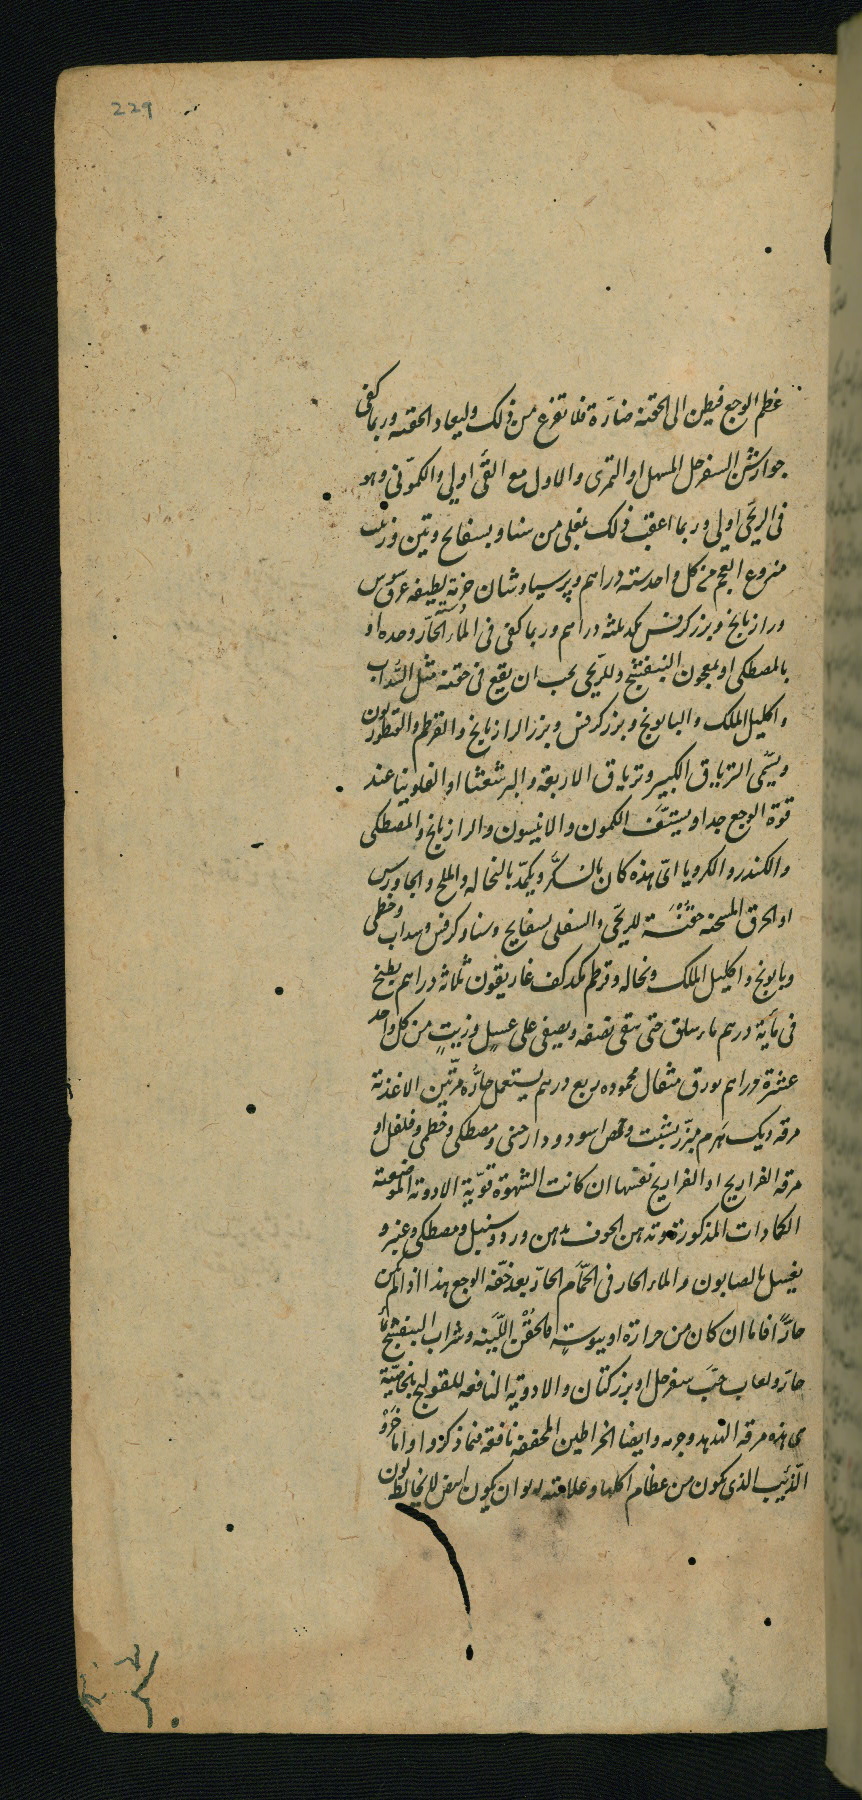 229
عظم الوجع فيظن ان الحقنة ضارة فلا تفزع من ذلك وليعاد الحقنة وربما كفى
جوارشن السفرجل المسهل او التمرى والاول مع القئ اولى والكمونى وهو
فى الريحى اولى وربما اعقب ذلك بمغلى من سنا وبسفايج وتين وزبيب
منزوع العجم من كل واحد ستة دراهم وپرسياوشان حزمة لطيفة عرق سوس
ورازيانج وبزر كرفس مكد ثلثه دراهم وربما كفى فى الماء الحار وحده او
بالمصطكى او بمعجون البنفسج وللريحى يجب ان يقع فى حقنه مثل السداب
واكليل الملك والبابونج وبزر كرفس وبزر الرازيانج والقرطم والقنطوريون
ويسقى الترياق الكبير وترياق الاربعة والبرشعثا او الفلونيا عند
قوة الوجع جدا ويستف الكمون والانيسون والرازيانج والمصطكى
والكندر والكرويا اى هذه كان بالسكر ويكمد بالنخاله والملح والجاورس
او الخرق المسخنه حقنة للريحى والسفلى بسفايج وسنا وكرفس وسداب وخطمى
وبابونج واكليل الملك ونخاله وقرطم مكد كف غاريقون ثلاثة دراهم يطبخ
فى مأية درهم ماء سلق حتى يبقى نصفه ويصفى على عسل وزيت من كل واحد
عشرة دراهم بورق مثقال محموده ربع درهم يستعمل حاره مرتين الاغذية
مرقه ديك هرم مبزر بشبت وحمص اسود ودارصنى ومصطكى وخطمى وفلفل او
مرقه الفراريج او الفراريج نفسها ان كانت الشهوة قوية الادوية الموضعية
الكمادات المذكورة وتدهن الجوف بدهن ورد وسنبل ومصطكى وعنبر و
يغسل بالصابون والماء الحار فى الحمام الحار بعد خفة الوجع هذا اذا لم يكن
حارا فاما ان كان من حرارة او يبوسة فالحقن اللينه وشراب البنفسج بماء
حار ولعاب حب سفرجل او بزر كتان والادوية النافعه للقولنج بخاصية
هى هذه مرقه الهدهد وجرمه وايضا الخراطين المجففه نافعة فيما ذكروا واما خرؤ
الذئب الذى يكون من عظام اكلها وعلامته ان يكون ابيض لا يخالطه لون